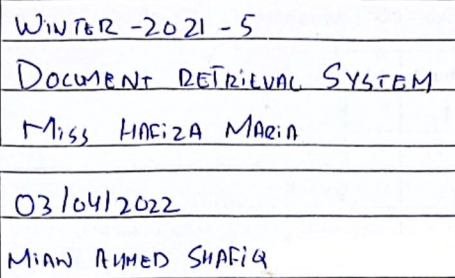 WINTER - 2021 - 5
DOCUMENT RETRIEVAL SYSTEM
MISS HAFIZA MARIA
03/04/2022
MIAN AHMED SHAFIQ